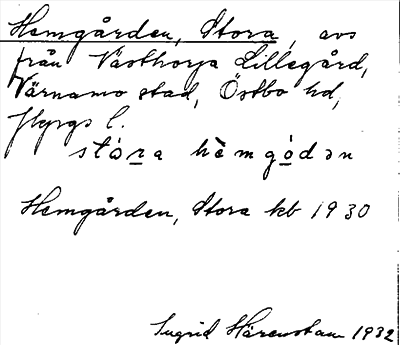 Hemgården, Stora, avs
från Västhorja Lillegård,
Värnamo stad, Östbo hd,
Jkpgs l.
stóra hèmgódən
Hemgården, Stora kb 1930
Ingrid Härenstam 1932